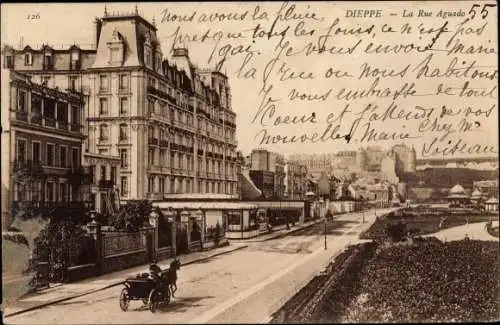 126
DIEPPE - La Rue Aguado
55
Nous avons la pluie
presque tous les jours, ce n'est pas
gai. Je vous envoie Marie
la rue ou nous habitons
Je vous embrasse de tout
Coeur et j'attends de vos
nouvelles. Marie chez Mr